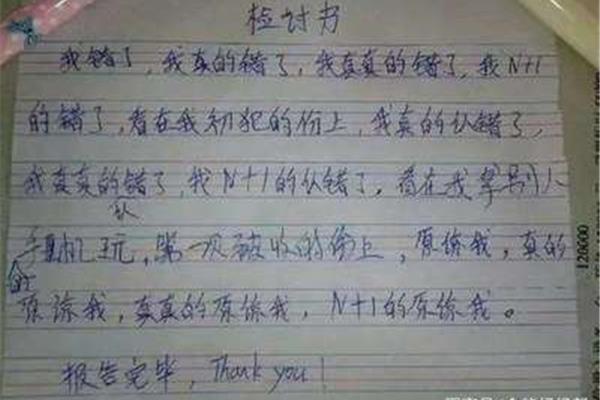 检讨书
我错了，我真的错了，我真真的错了，我N+1
的错了，看在我初犯的份上，我真的认错了，
我真真的错了，我N+1的认错了，看在我拿别人
认
手机玩，第一次被收的份上，原谅我，真的
原谅我，真真的原谅我，N+1的原谅我。
报告完毕，Thank you！
126000